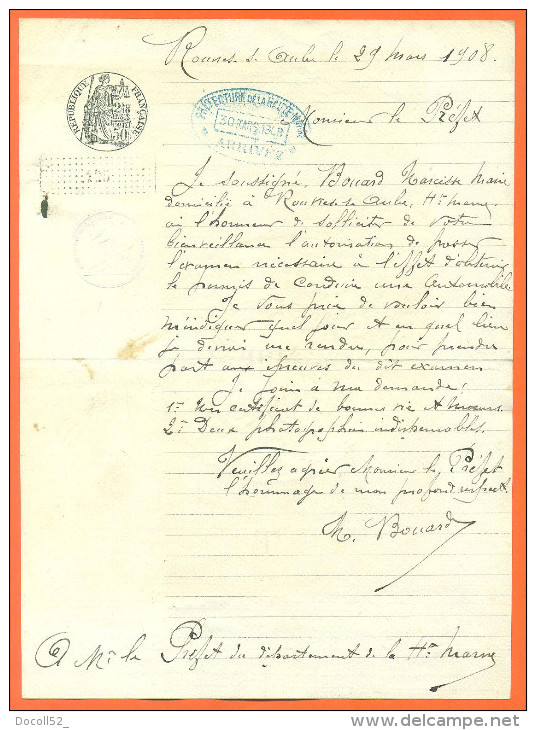 Rouvres s. Aube le 29 mars 1908.
RÉPUBLIQUE FRANÇAISE
50
PRÉFECTURE DE LA HAUTE MARNE
30 MARS 1908
ARRIVÉE
Monsieur le Préfet
Je soussigné, Bouard Narcisse Marie
domicilié à Rouvres-s-Aube, Hte Marne,
ai l'honneur de solliciter de votre
bienveillance l'autorisation de passer
l'examen nécessaire à l'effet d'obtenir
le permis de conduire une automobile
Je vous prie de vouloir bien
m'indiquer quel jour et en quel lieu
je devrai me rendre, pour prendre
part aux épreuves du dit examen
Je joins à ma demande:
1º Un certificat de bonnes vie et mœurs.
2º Deux photographies indispensables.
Veuillez agréer Monsieur le Préfet
l'hommage de mon profond respect.
N. Bouard
A Mr le Préfet du département de la Hte Marne
Docoll52_
www.delcampe.net